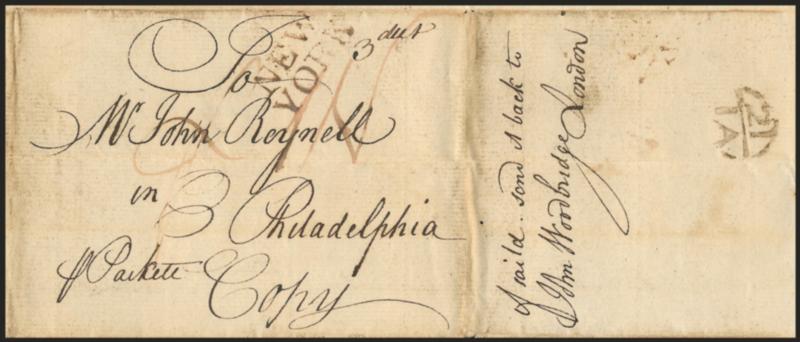 To
NEW
YORK
3 dwt
Mr John Reynell
in Philadelphia
Packett
Copy
send it back to
John Woodbridge London
21
IA